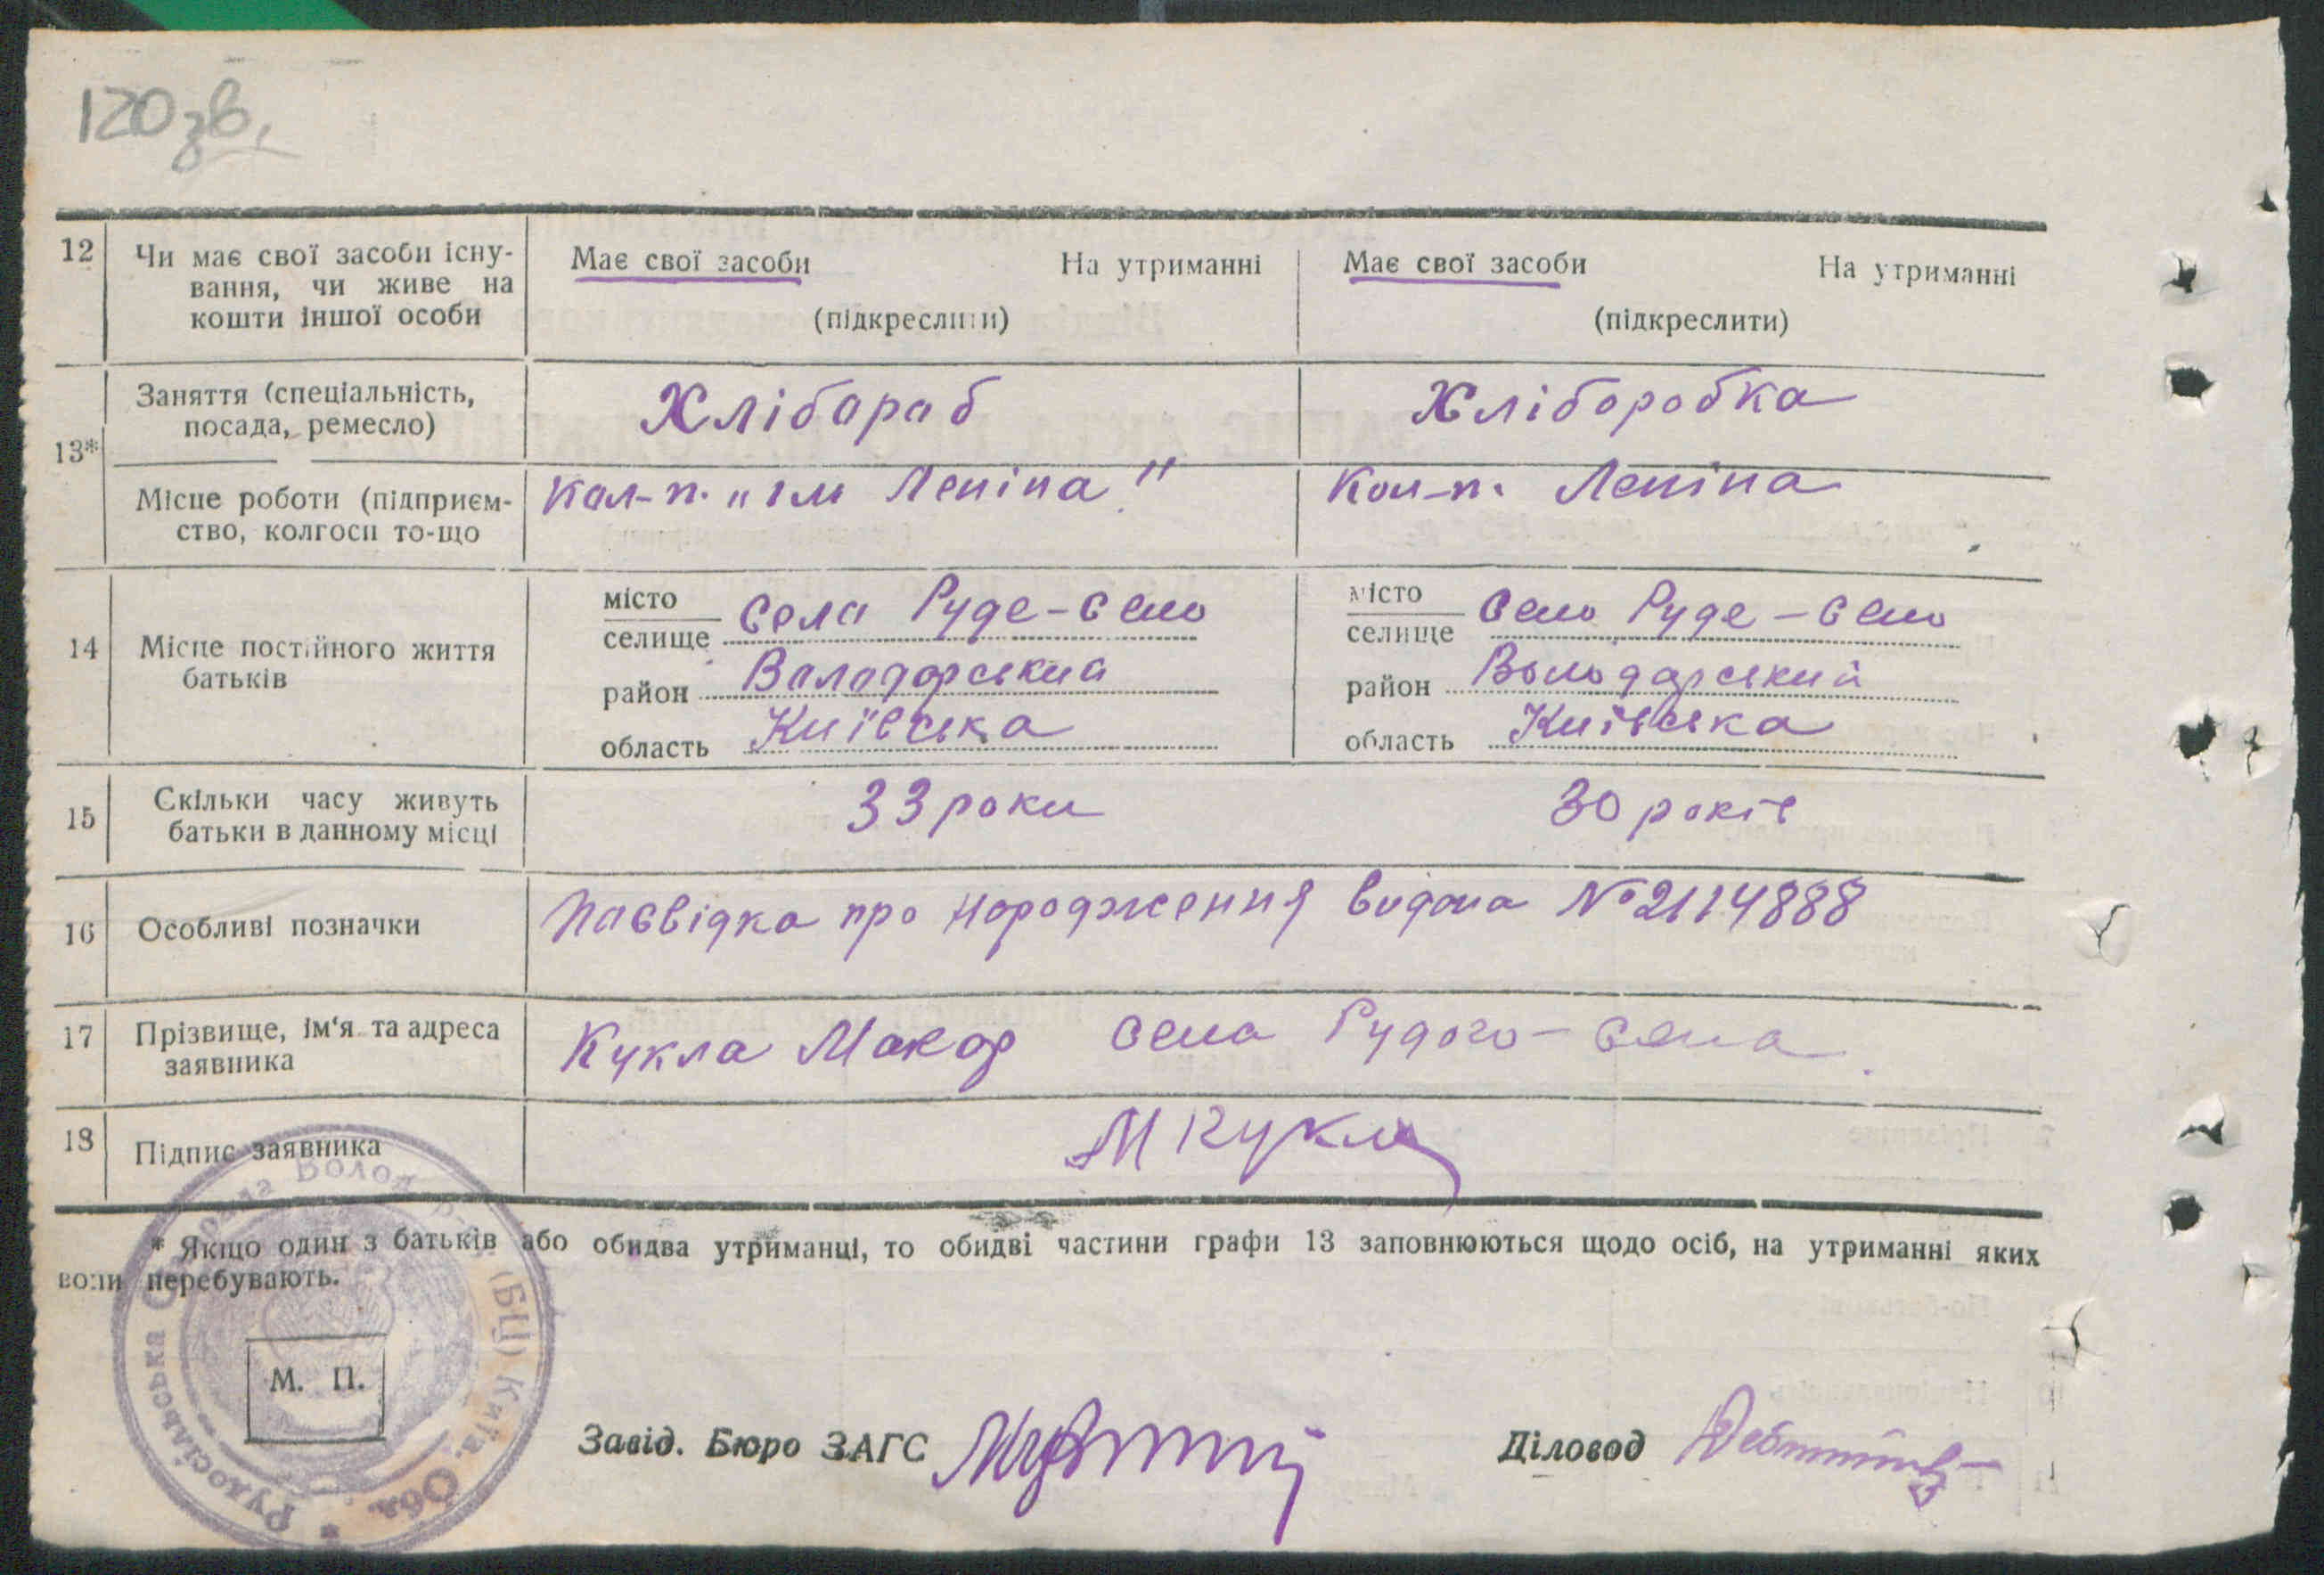 120 зв.
12 Чи має свої засоби існу- Має свої засоби На утриманні Має свої засоби На утриманні
вання, чи живе на
кошти іншої особи (підкреслити) (підкреслити)
13* Заняття (спеціальність, Хлібораб Хліборобка
посада, ремесло)
Місце роботи (підприєм- Кол-п. "ім Леніна" Кол-п. Леніна
ство, колгосп то-що
14 Місце постійного життя
батьків
місто Села Руде-Село місто Село Руде-Село
селище селище
район Володарський район Володарський
область Київська область Київська
15 Скільки часу живуть 33 роки 30 років
батьки в данному місці
16 Особливі позначки Пасвідка про народження видана № 2114888
17 Прізвище, ім'я та адреса Кукла Макар села Рудого-Села
заявника
18 Підпис заявника М Кукла
* Якщо один з батьків або обидва утриманці, то обидві частини графи 13 заповнюються щодо осіб, на утриманні яких
вони перебувають.
Рудосільська Володар (БЦ) Київ. Обл.
М. П.
Завід. Бюро ЗАГС Діловод